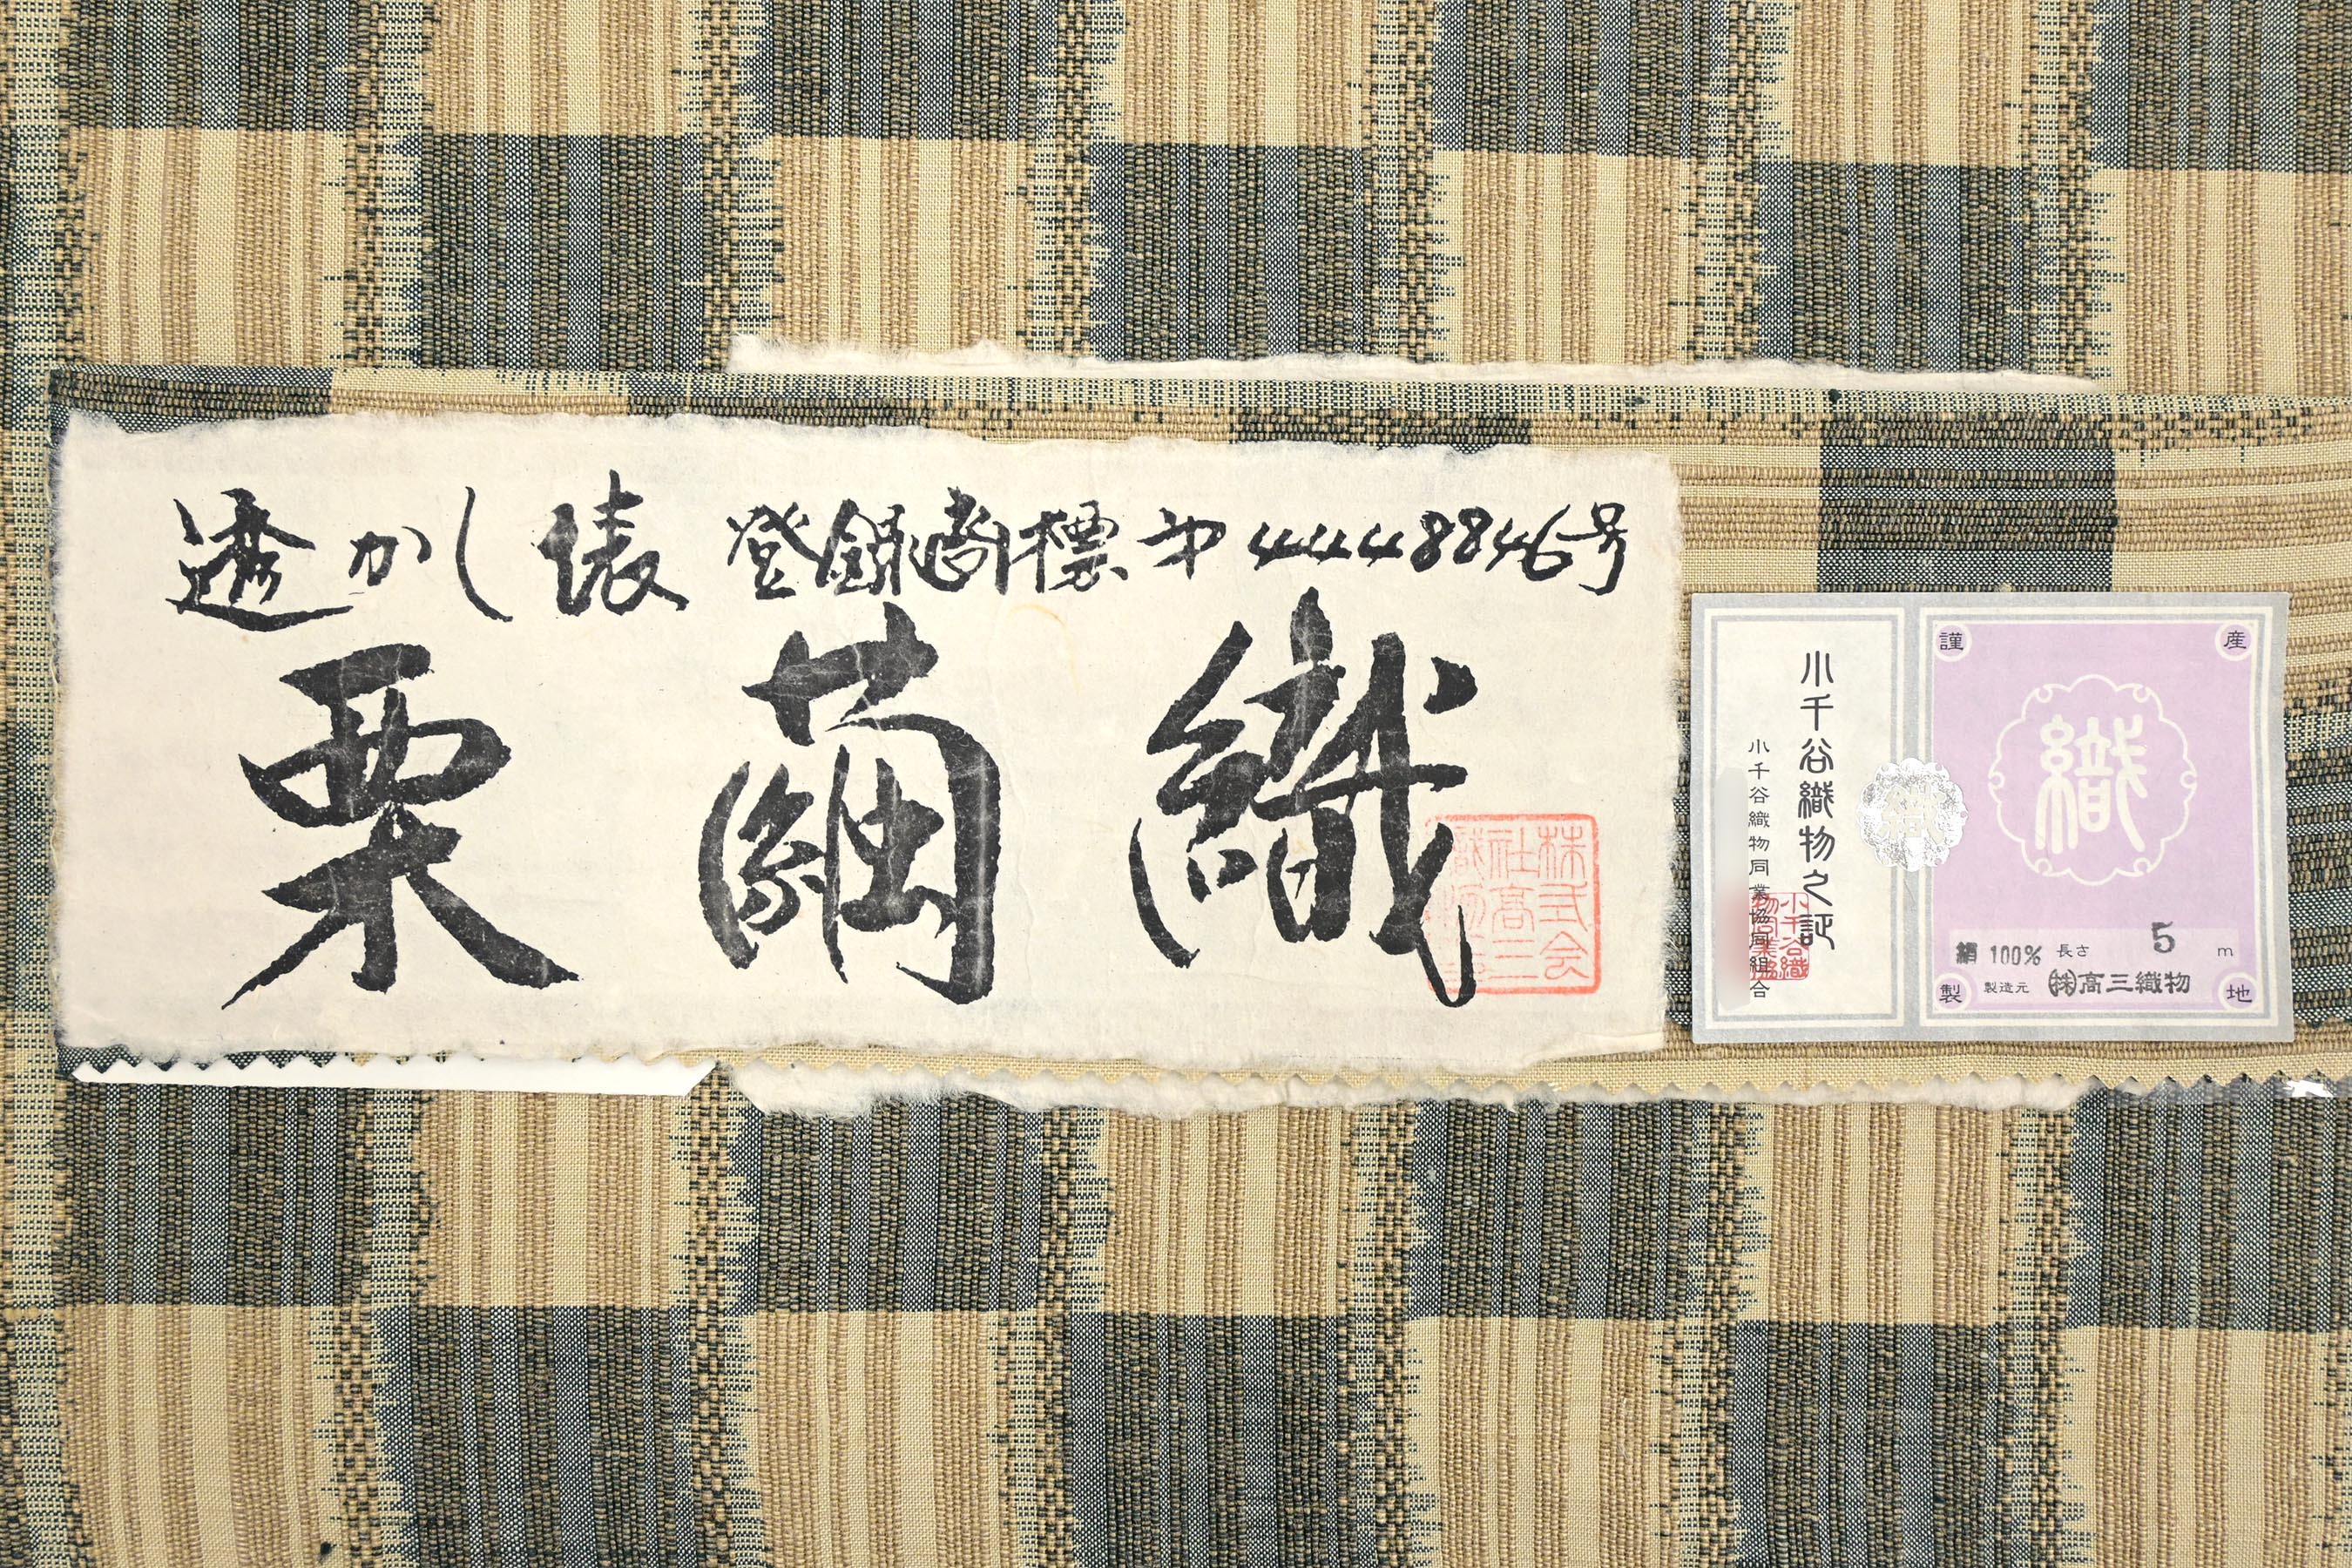 透かし俵 登録商標 第4448846号
栗繭織
株式会
社高三
織物
小千谷織物之証
小千谷織物同業協同組合
織
謹
産
織
絹 100% 長さ 5 m
製造元 ㈱高三織物
製
地